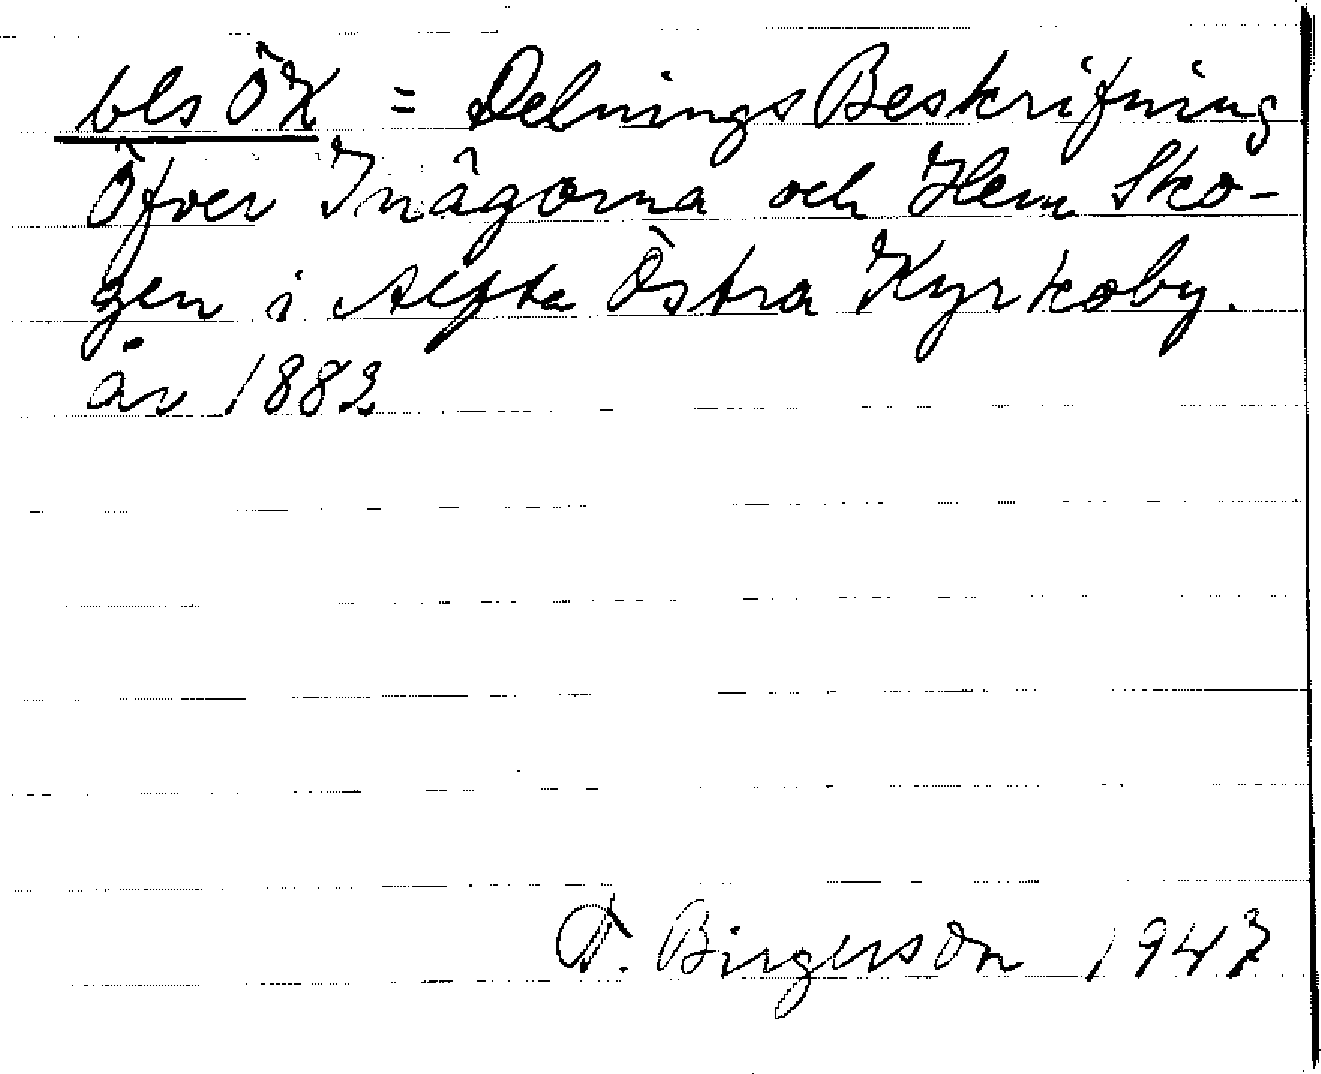 bls ÖK = Delnings Beskrifning
Öfver Inägorna och Hem Sko-
gen i Alfta Östra Kyrkoby.
år 1882
T. Birgerson 1947